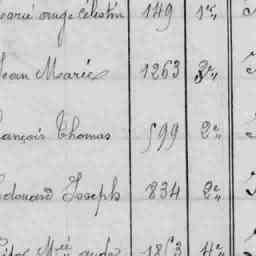 Marié ange Célestin 149 1e,,
Jean Marie 1263 3e,,
François Thomas 599 2e,,
Edouard Joseph 834 2e,,
1853 4e,,